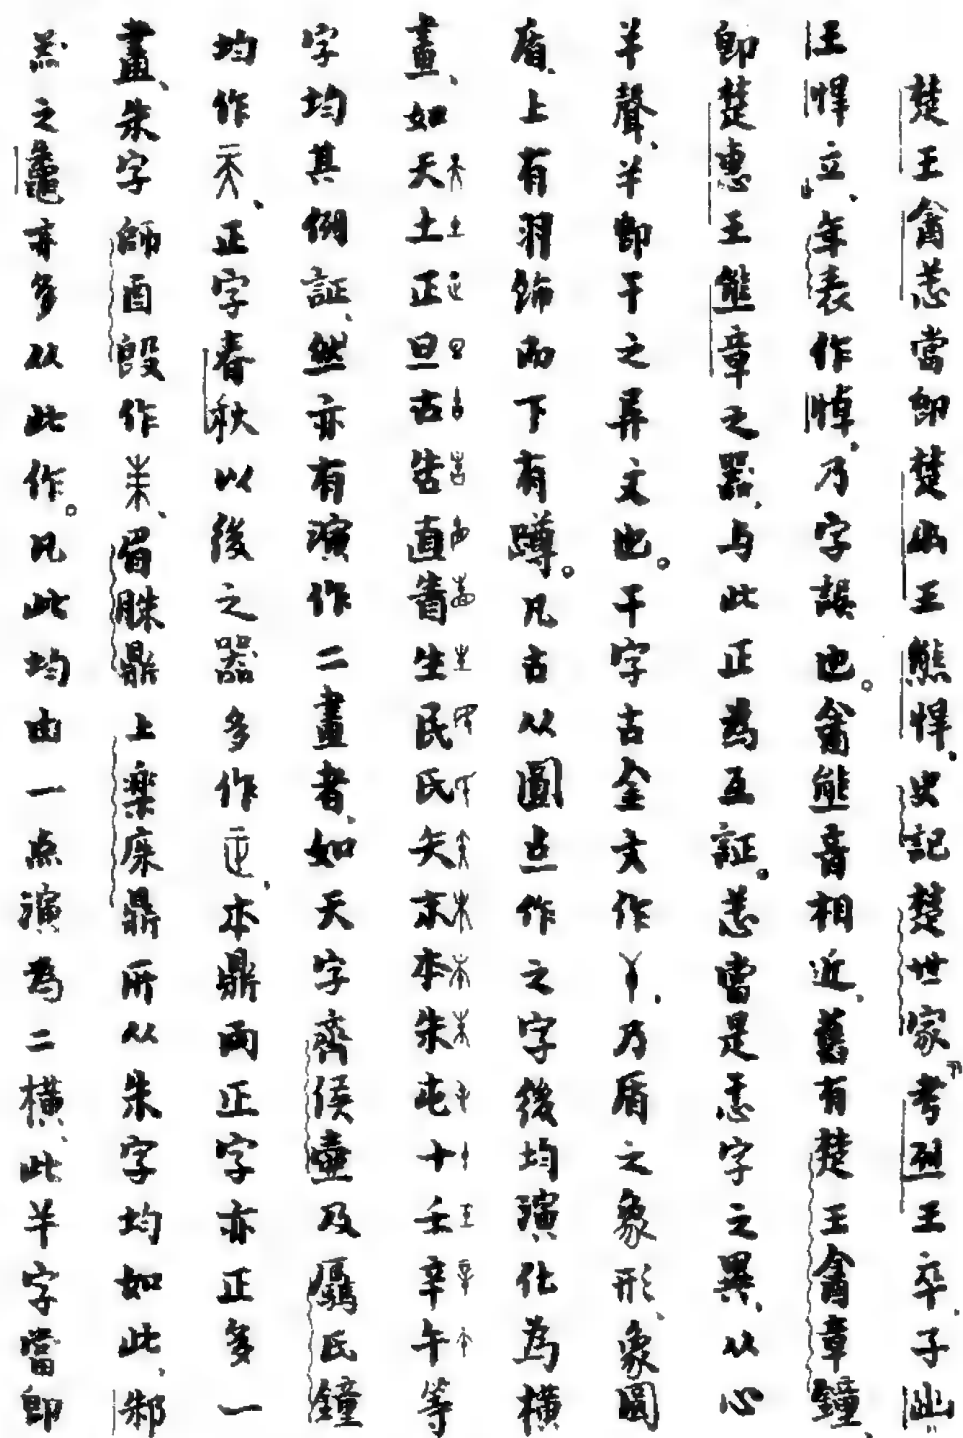 楚王禽恙當即楚幽王熊悍、史記楚世家「考烈王卒、子幽
王悍立」、年表作悼、乃字誤也。禽熊音相近、舊有楚王禽章鐘、
即楚惠王熊章之器、与此正為互証。恙當是恙字之異、从心
羊聲、羊即干之异文也。干字古金文作、乃盾之象形、象圓
盾、上有羽飾而下有蹲。凡古从圓点作之字後均演化為橫
畫、如天土正旦古告直啬生民氏矢木本朱屯十壬辛午等
字均其例証、然亦有演作二畫者、如天字齊侯壺及𠫑氏鐘
均作、正字春秋以後之器多作、本鼎兩正字亦正多一
畫、朱字師酉𣪘作、眉脒鼎上樂床鼎所从朱字均如此、邾
之鼄亦多从此作。凡此均由一点演為二橫、此羊字當即